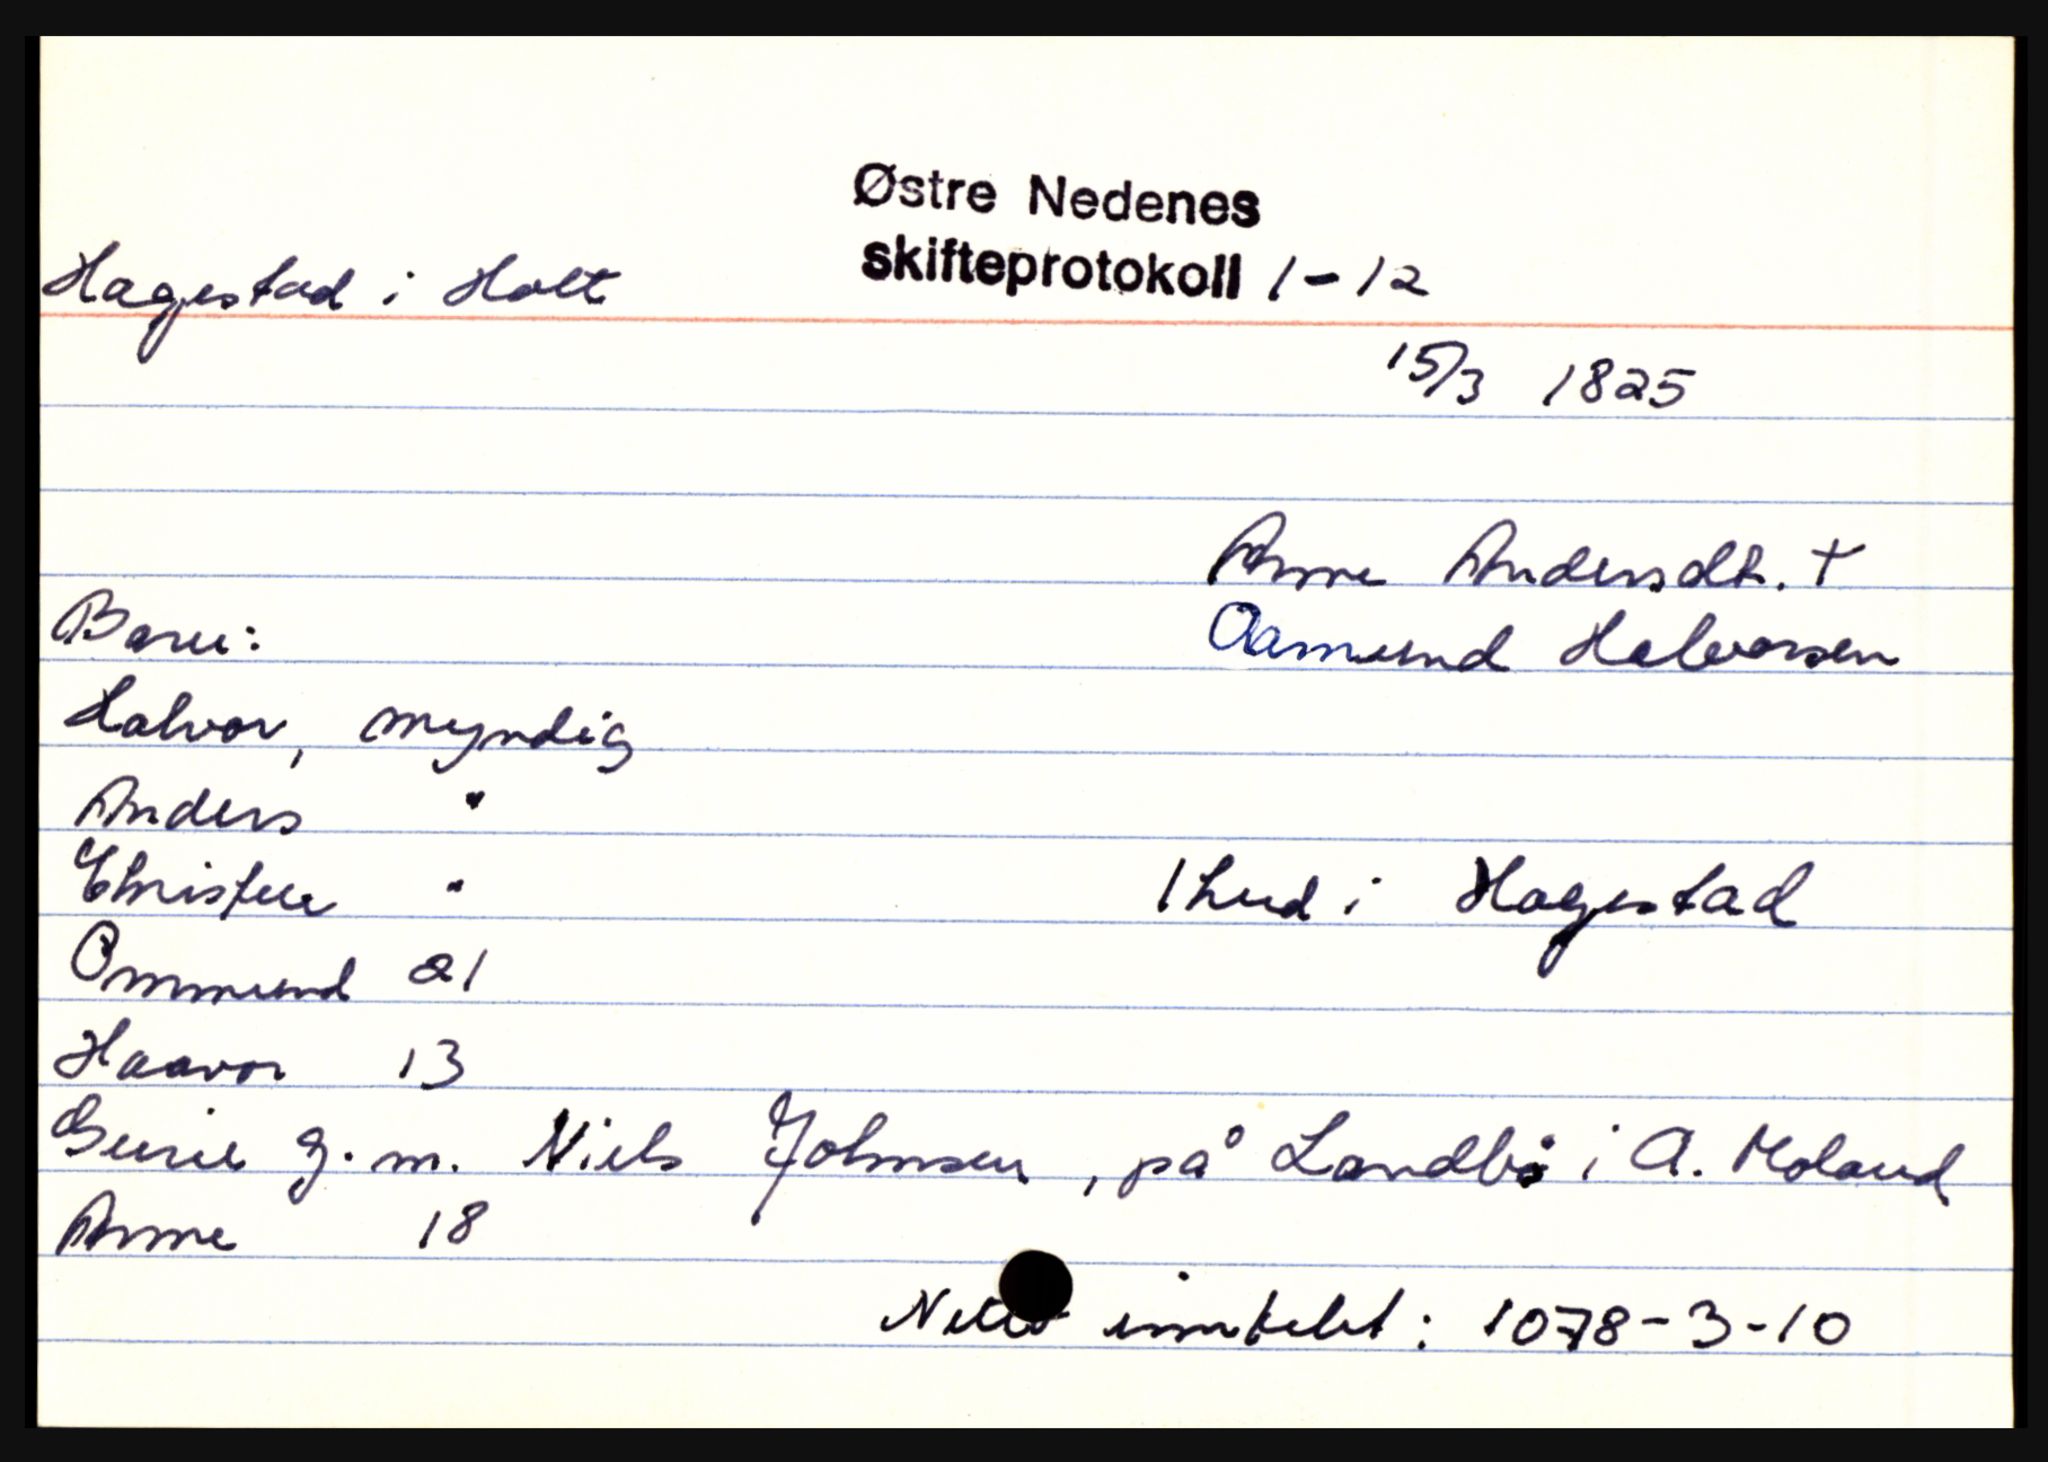 Østre Nedenes
skifteprotokoll 1-12
Hagestad i Holt
15/3 1825
Anne Andersdt. +
Barn:
Aamund Halvorsen
Halvor, myndig
Anders "
Christen "
1 hud i Hagestad
Ommund 21
Haavor 13
Gurie g.m. Niels Johnsen, på Landbø i A. Moland
Anne 18
Netto inntekt: 1078-3-10